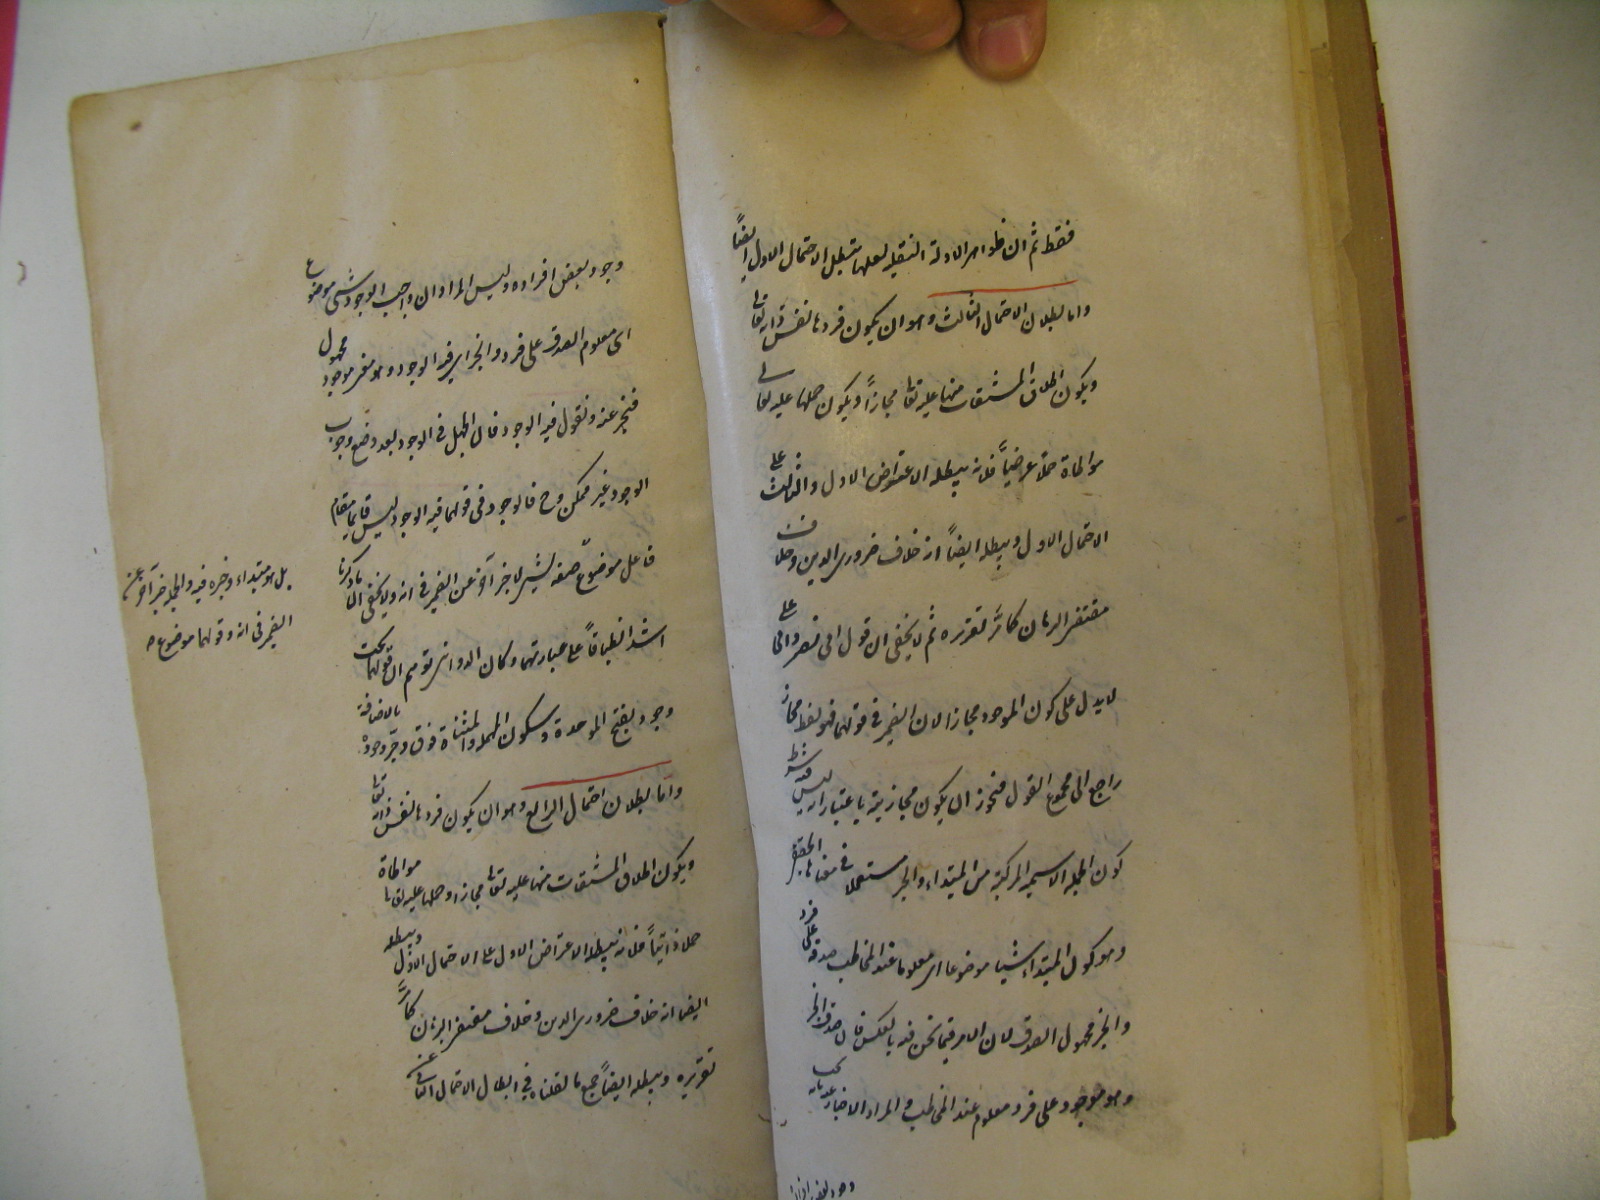 فقط ثم ان ظواهر الادلة النقلية لعلها تبطل الاحتمال الاول ايضاً
واما بطلان الاحتمال الثالث وهو ان يكون فردها نفس ذاته تعالى
ويكون اطلاق المشتقات منها عليه تعالى مجازاً ويكون حملها عليه تعالى
مواطاة حملا عرضياً فلانه يبطله الاعتراض الاول والثالث على
الاحتمال الاول ويبطله ايضاً انه خلاف ضرورى الدين وخلاف
مقتضى البرهان كما مرّ تقريره ثم لا يخفى ان قول ابى نصر وابى على
لا يدل على كون الموجود مجازا لان الضمير فى قولهما فهو لفظ مجاز
راجع الى مجموع القول فيجوز ان يكون مجازيته باعتبار انه ليس فيه شرط
كون الجملة الاسمية المركبة من المبتداء والخبر مستعملا فى معناها الحقيقى
وهو كون المبتداء شيا موضوعا اى معلوما عند المخاطب صدقه على فرد
والخبر مجهول الصدق لان الامر فيما نحن فيه بالعكس فان صدق الخبر
وهو موجود على فرد معلوم عند المخاطب والمراد الاخبار عنه بانه يجب
وجود بعض افراده
وجود بعض افراده وليس المراد ان واجب الوجود شئ موضوع
اى معلوم الصدق على فرد والخبر اى فيه الوجود وهو مفسر موجود مجهول
فنخبر عنه ونقول فيه الوجود فان الجهل فى الوجود بعد وضع وجوب
الوجود غير ممكن وح فالوجود فى قولهما فيه الوجود ليس قايما مقام
فاعل موضوع صفة لشئ لا خبر آخر عن الضمير فى انه ولا يخفى ان ما ذكرنا
اشد انطباقاً على عبارتهما وكان الدوانى توهم ان قولهما يجب
وجود بفتح الموحدة وسكون المهملة والمثناة فوق وجرّ وجوده بالاضافة
واما بطلان احتمال الرابع وهو ان يكون فردها نفس ذاته تعالى
ويكون اطلاق المشتقات منها عليه تعالى مجازا وحملها عليه تعالى مواطاة
حملا ذاتياً فلانه يبطله الاعتراض الاول على الاحتمال الاول ويبطله
ايضا انه خلاف ضرورى الدين وخلاف مقتضى البرهان كما مرّ
تقريره ويبطله ايضاً جميع ما نقلناه فى ابطال الاحتمال الثانى
بل هو مبتداء وخبره فيه والجملة خبر آخر عن
الضمير فى انه وقولهما موضوع صح